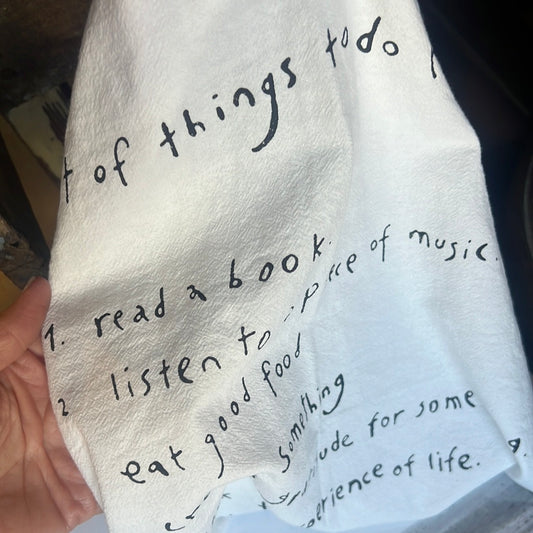 of things to do
1. read a book.
2 listen to a piece of music.
eat good food
something
for some
of life.